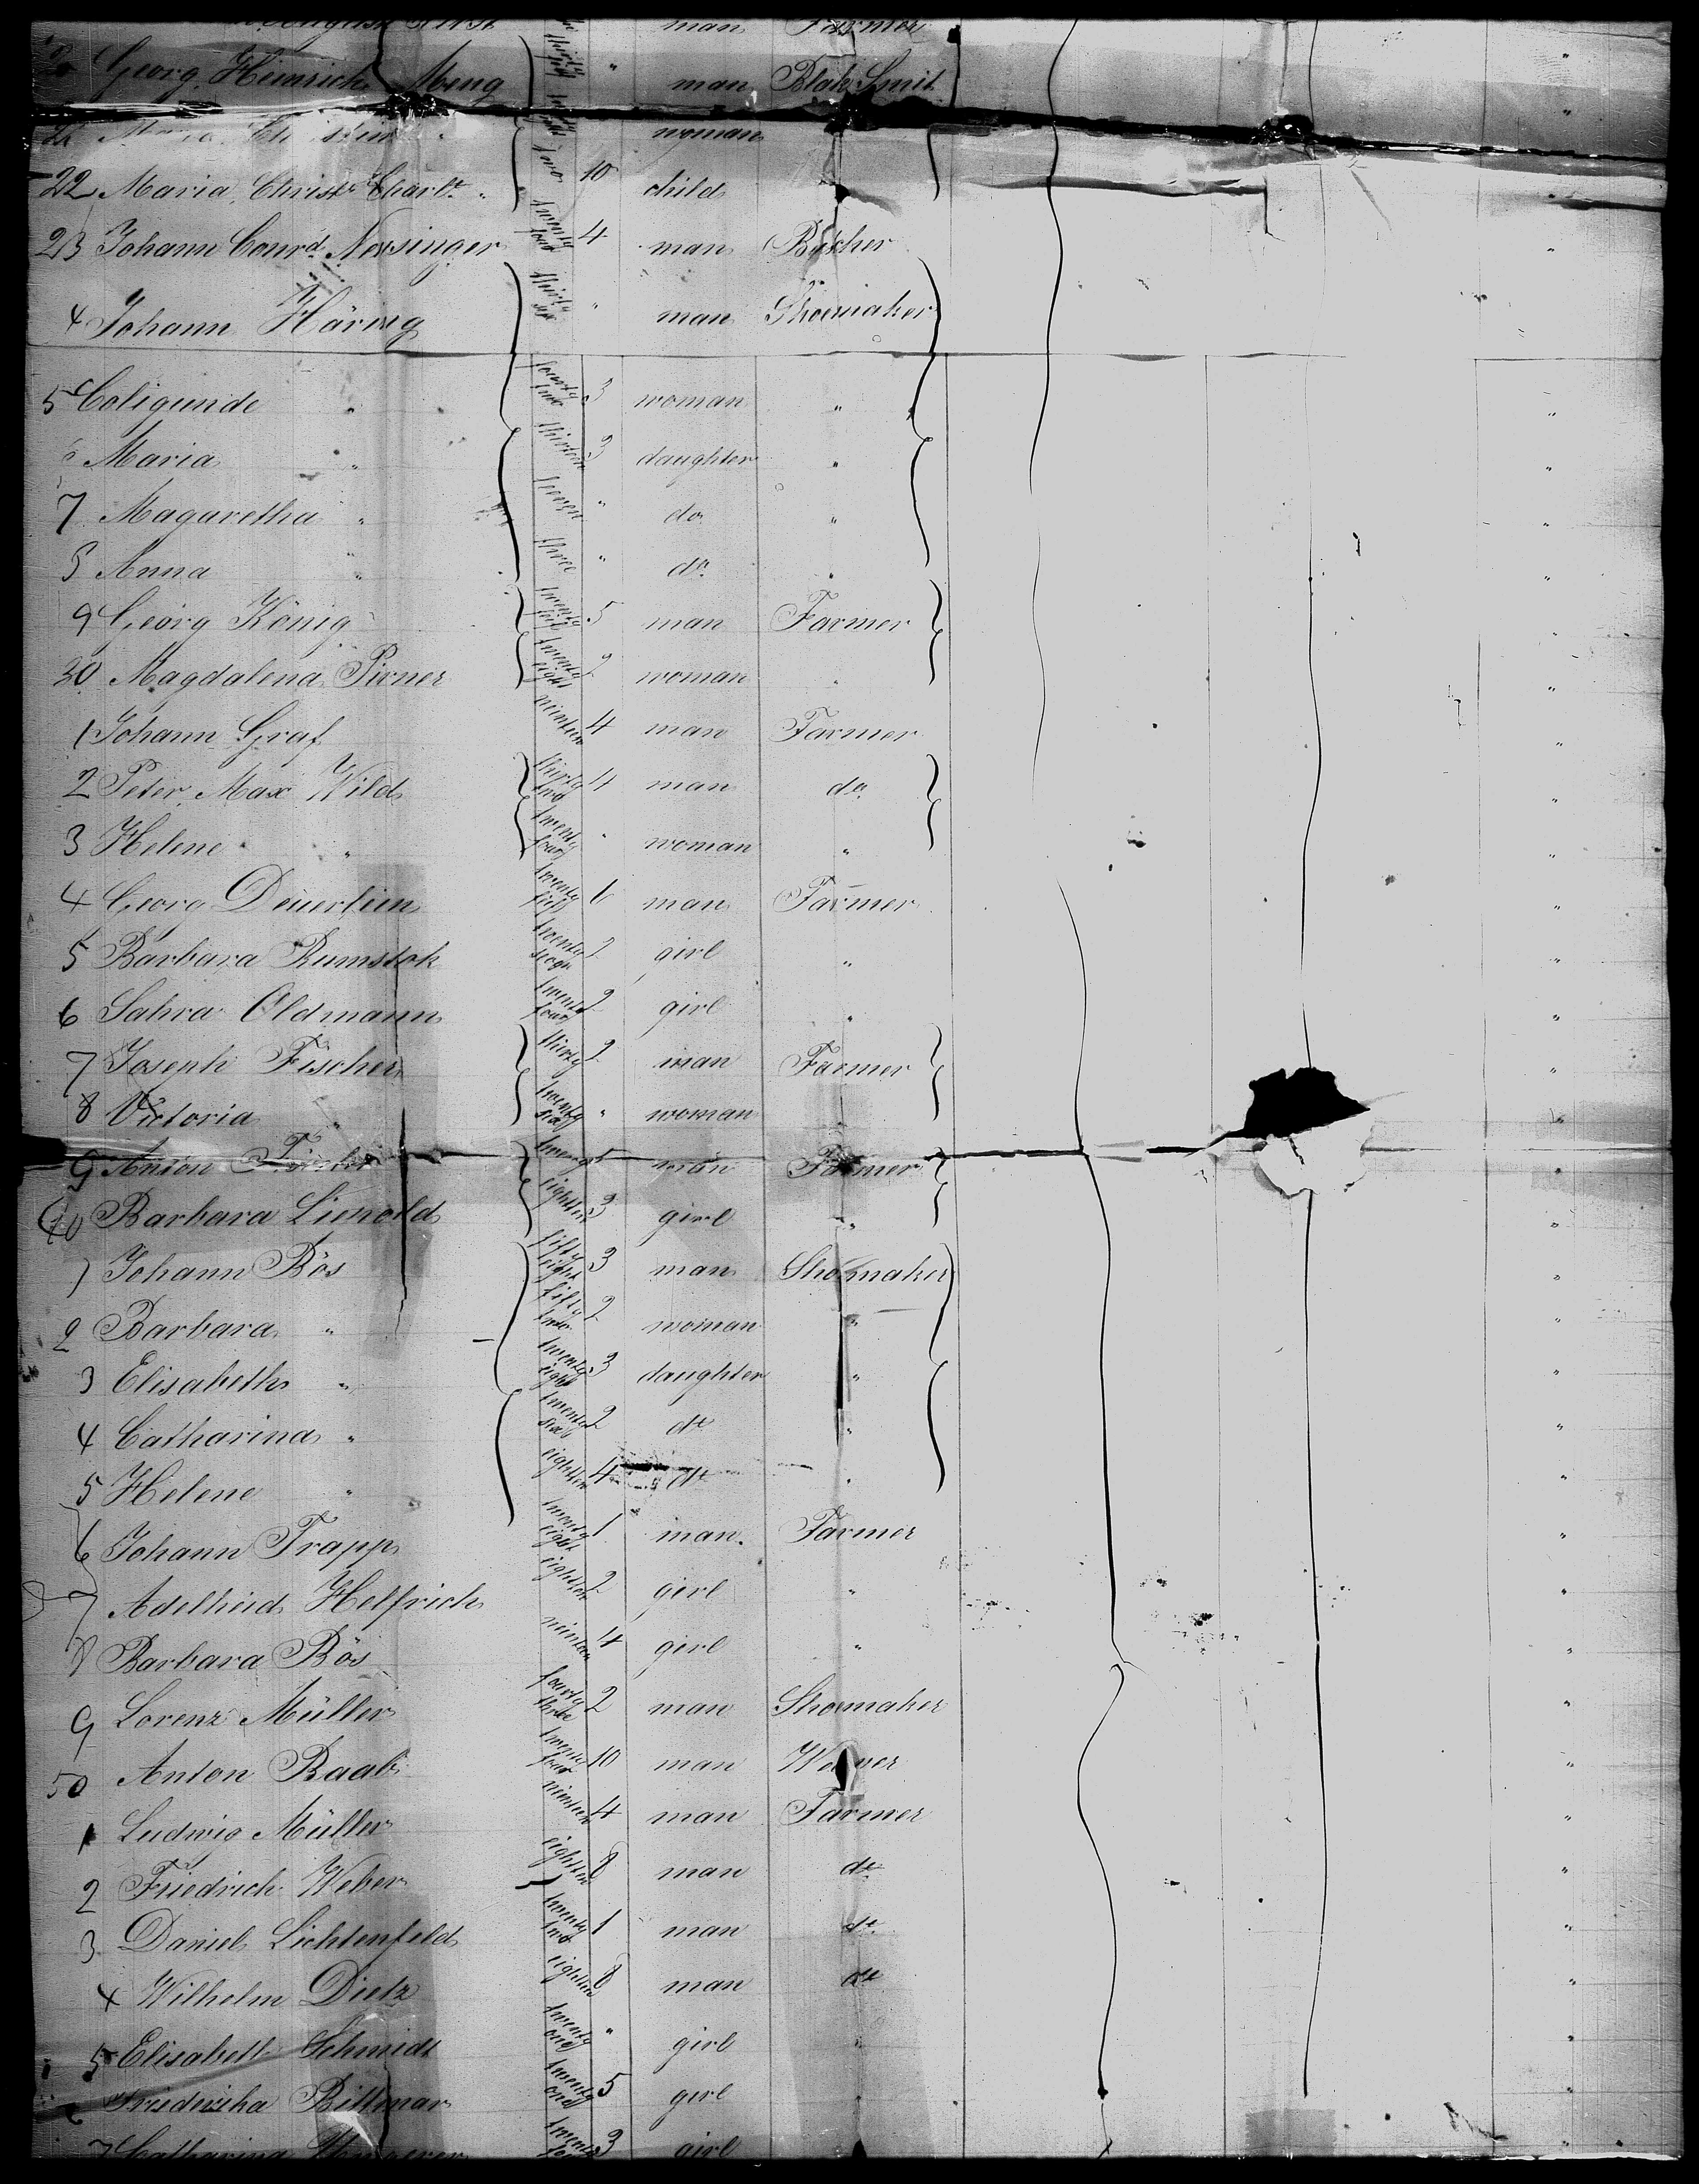 man Farmer
20 Georg Heinrich Meng thirty " man Blak Smit
woman
22 Maria Christ Charlt " two 10 child
23 Johann Conrd Nersinger twenty four 4 man Bäkher
4 Johann Häring thirty six " man Shoemaker
5 Coligunde " fourty two 3 woman "
6 Maria " thirteen 3 daughter "
7 Magaretha " seven " do "
8 Anna " three " do "
9 Georg König twenty six 5 man Farmer
30 Magdalena Pirner twenty eight 2 woman "
1 Johann Graf ninteen 4 man Farmer
2 Peter Max Wild thirty two 4 man do
3 Helene " twenty four " woman "
4 Georg Deuerlein twenty five 1 man Farmer
5 Barbara Rumstok twenty 2 girl "
6 Sahra Oldmann twenty four 2 girl "
7 Joseph Fischer thirty 2 man Farmer
8 Victoria " twenty six " woman "
9 Anton twenty 5 man Farmer
40 Barbara Lienold eighteen 3 girl "
1 Johann Bös fifty eight 3 man Shoemaker
2 Barbara " fifty two 2 woman "
3 Elisabeth " twenty eight 3 daughter "
4 Catharina " twenty six 2 dt "
5 Helene " eighteen 4 dt "
6 Johann Trapp twenty eight 1 man Farmer
7 Adelheid Helfrich eighteen 2 girl "
8 Barbara Bös ninteen 4 girl "
9 Lorenz Müller fourty three 2 man Shoemaker
50 Anton Baab twenty four 10 man
1 Ludwig Müller ninteen 4 man Farmer
2 Friedrich Weber eighteen 8 man dt
3 Daniel Lichtenfeld twenty two 1 man dt
4 Wilhelm Dietz eighteen 8 man dt
5 Elisabeth Schmidt twenty one " girl "
6 Friederika Bittmar twenty one 5 girl "
7 Catharina twenty four 3 girl